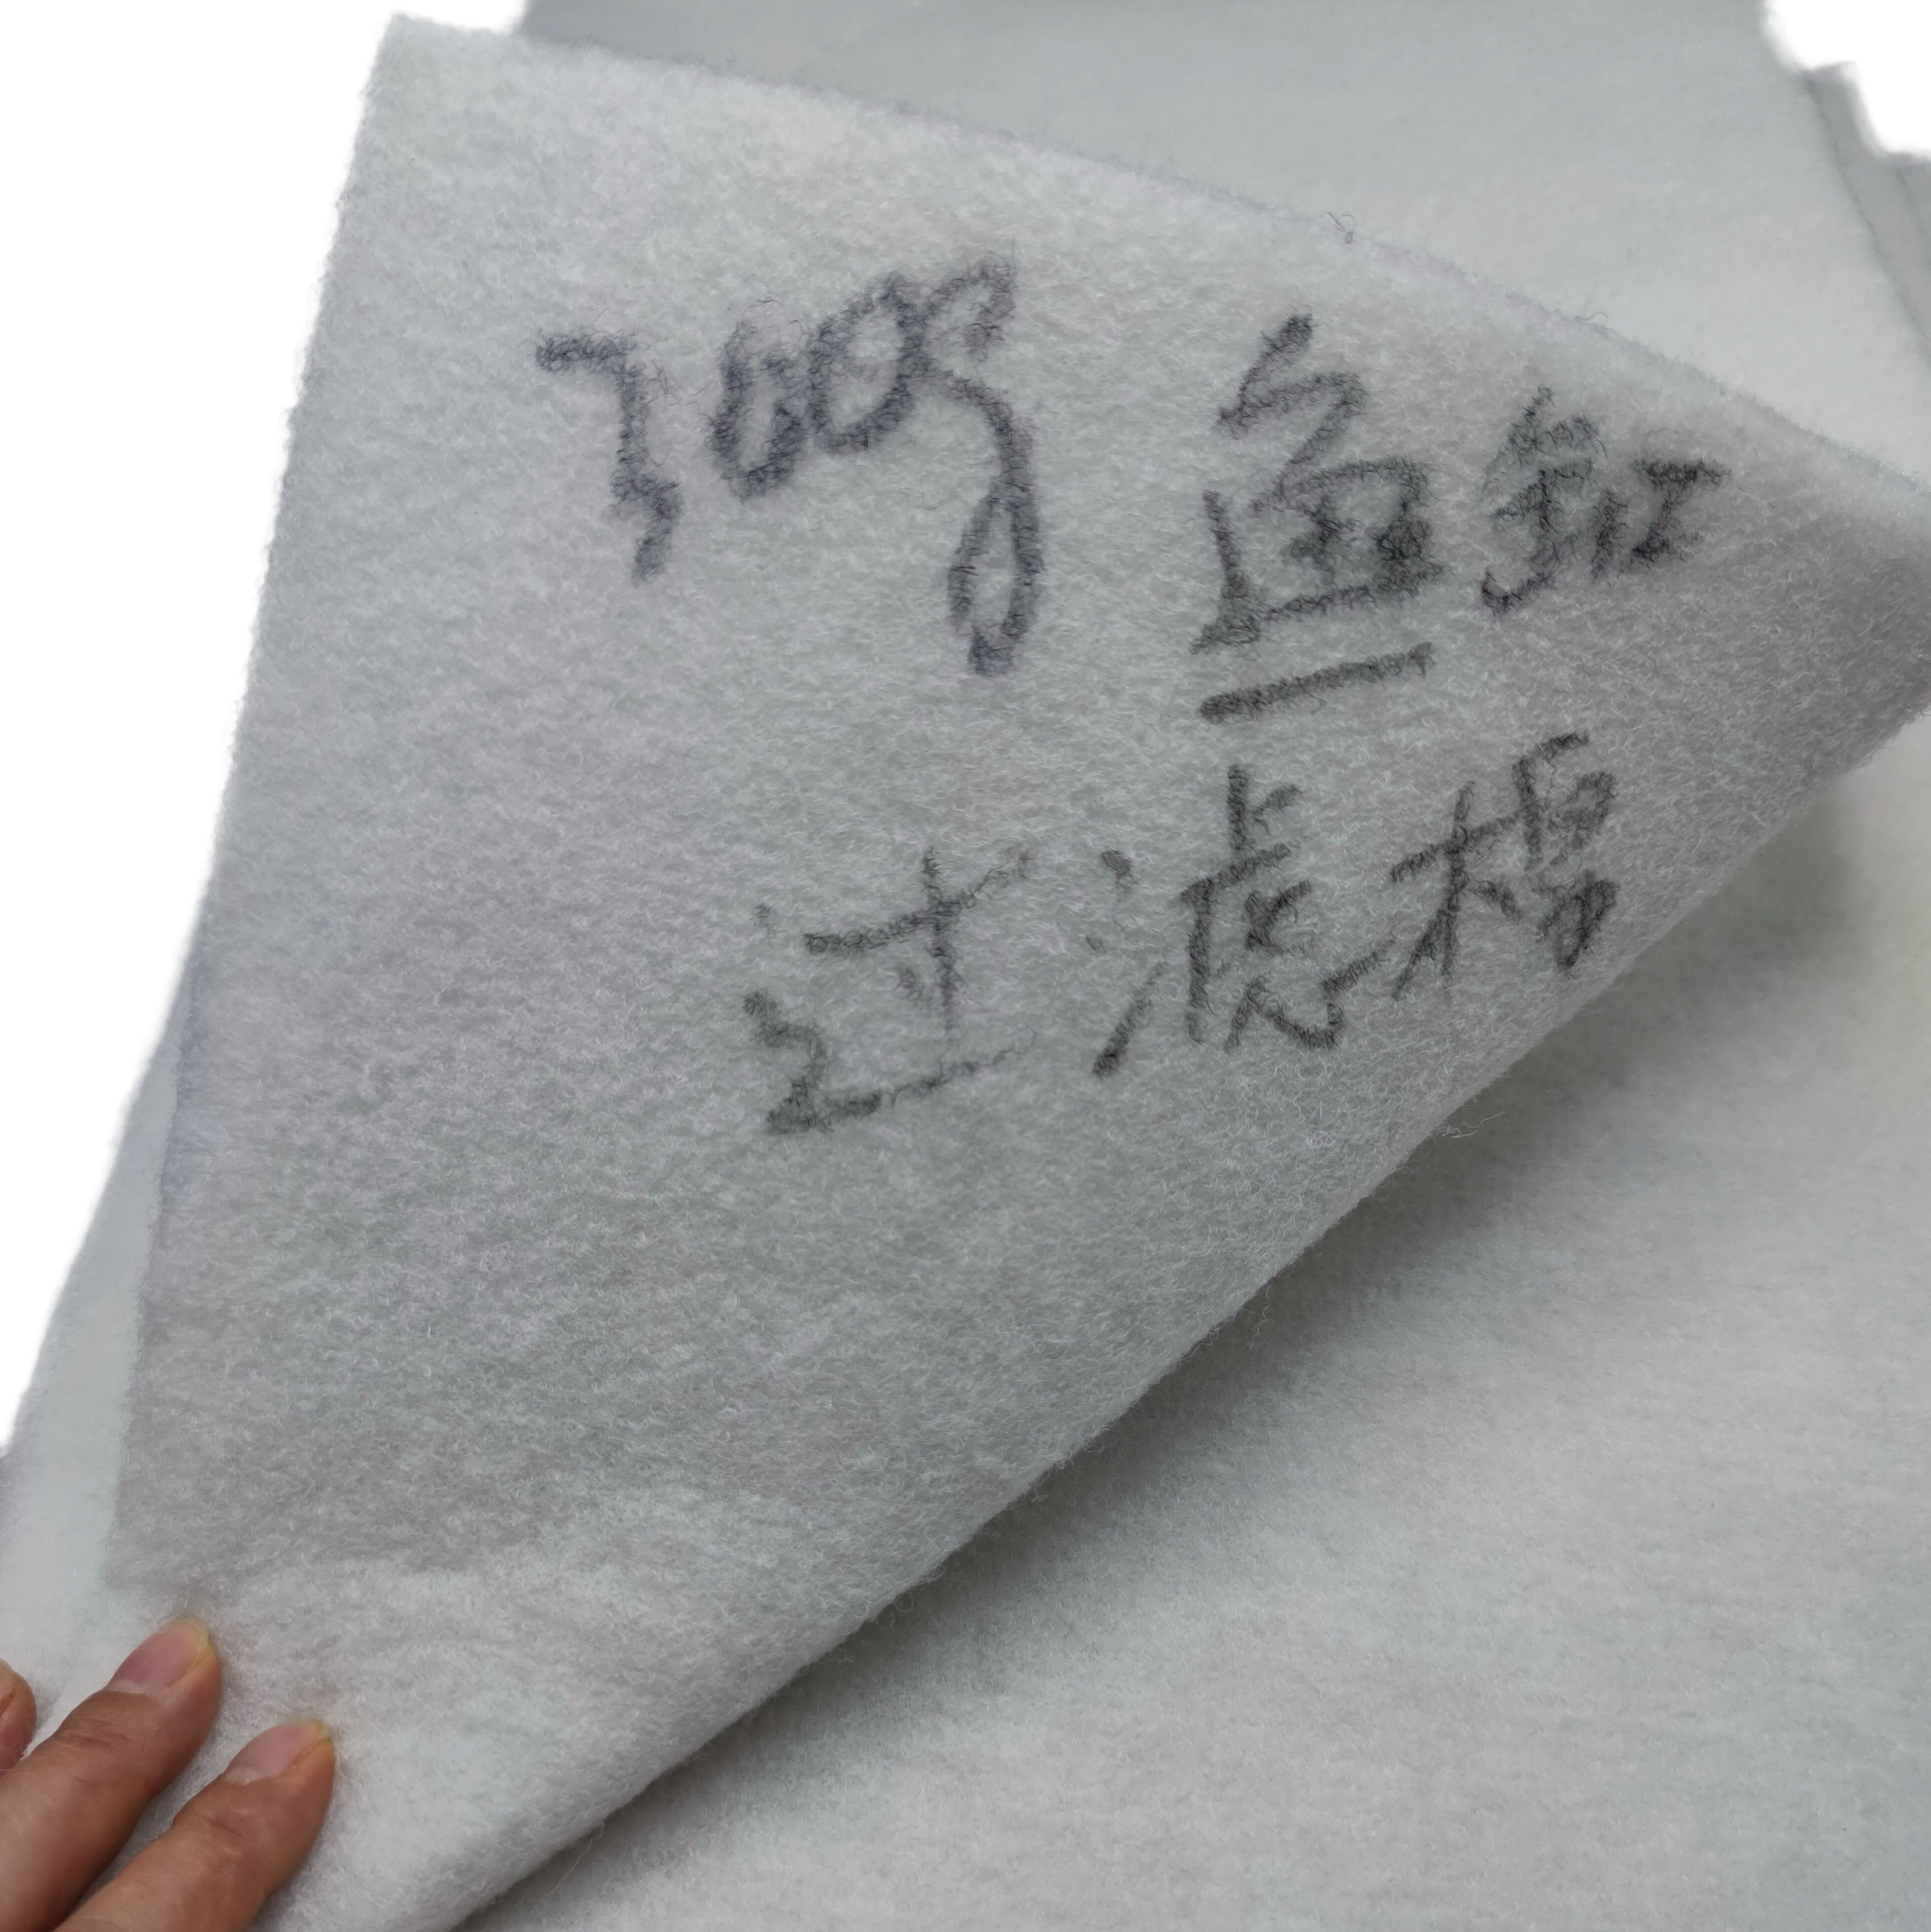 300g 鱼缸
过滤棉